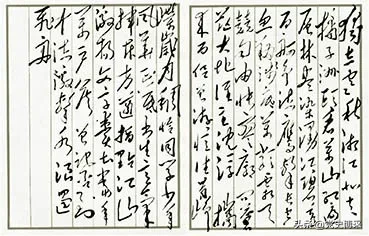 独立寒秋湘江北去
橘子洲头看万山红遍
层林尽染漫江碧透
百舸争流鹰击长空
鱼翔浅底万类霜天
竞自由怅寥廓问苍
茫大地谁主沉浮 携
来百侣曾游忆往昔峥
嵘岁月稠恰同学少年
风华正茂书生意气
挥斥方遒指点江山
激扬文字粪土当年
万户侯曾记否到
中流击水浪遏
飞舟
头条